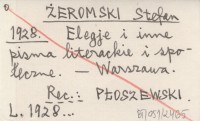 ŻEROMSKI Stefan
1928. Elegje i inne
pisma literackie i spo-
łeczne. — Warszawa.
Rec.: PŁOSZEWSKI
L. 1928...